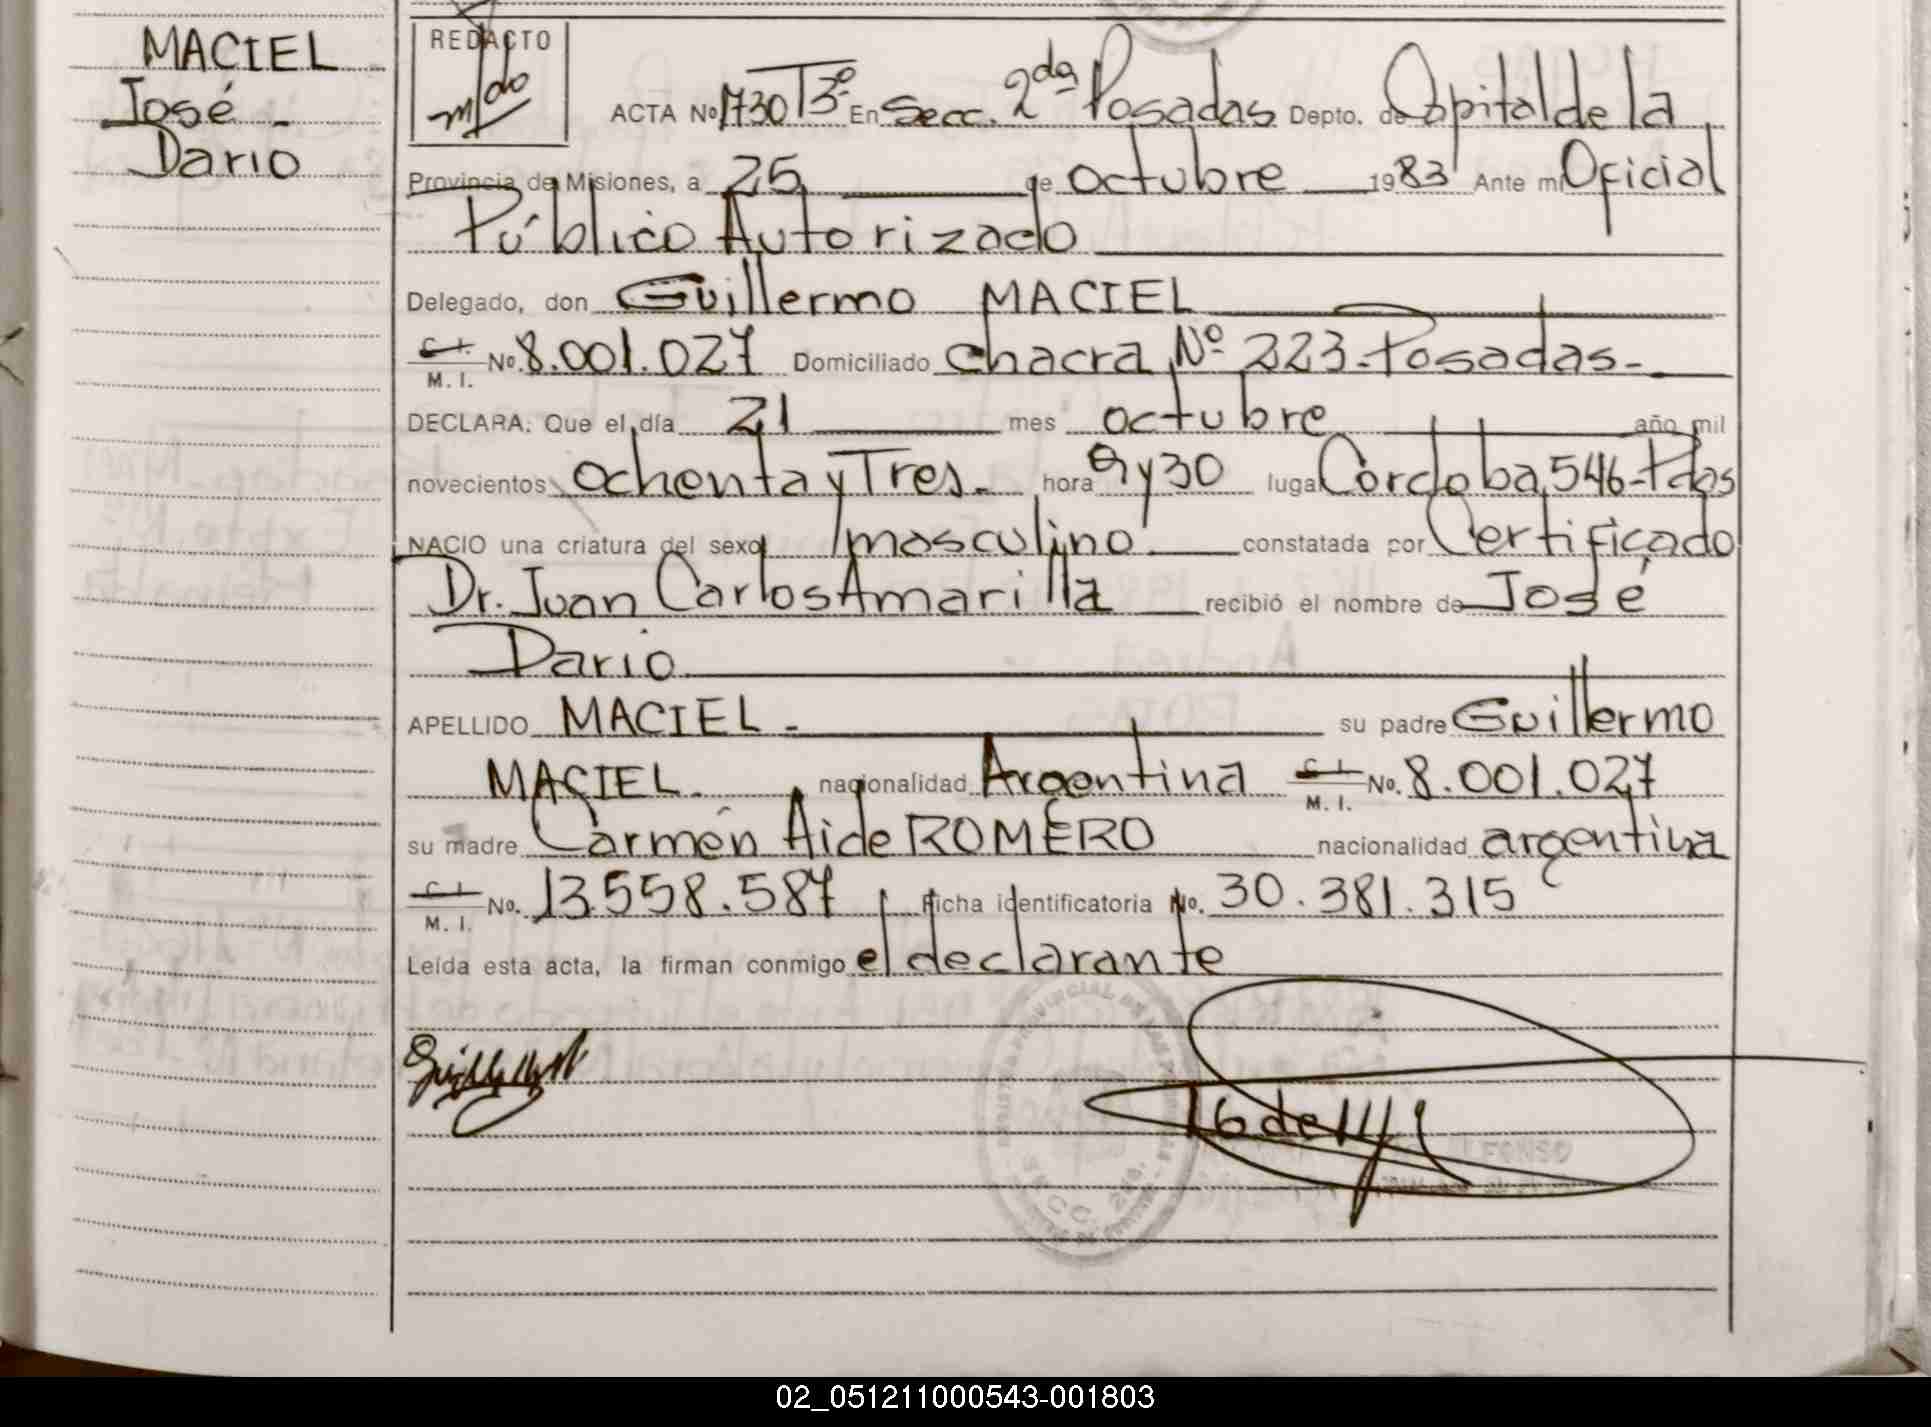 MACIEL
José
Dario
REDACTO
ACTA No 1730 T3º En Secc. 2da Posadas Depto. de Capital de la
Provincia de Misiones, a 25 de octubre 1983 Ante mi Oficial
Público Autorizado
Delegado, don Guillermo MACIEL
C. I. M. I. No. 8.001.027 Domiciliado chacra Nº 223-Posadas-
DECLARA: Que el día 21 mes octubre año mil
novecientos ochenta y Tres- hora 9 y 30 lugar Córdoba 546-Pdas
NACIO una criatura del sexo masculino constatada por Certificado
Dr. Juan Carlos Amarilla recibió el nombre de José
Dario
APELLIDO MACIEL - su padre Guillermo
MACIEL. nacionalidad Argentina C. I. M. I. No. 8.001.027
su madre Carmén Aide ROMERO nacionalidad argentina
C. I. M. I. No. 13.558.587 Ficha identificatoria No. 30.381.315
Leída esta acta, la firman conmigo el declarante
SECC. 2da.
02_051211000543-001803